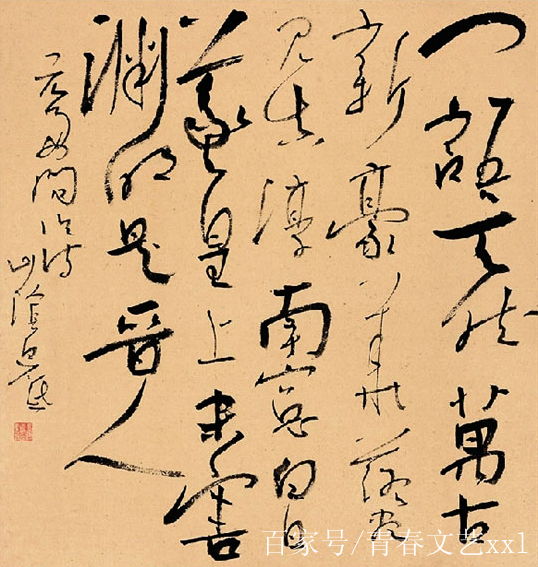 一語天然萬古
新豪華落盡
見真淳南窗白日
羲皇上未害
淵明是晉人
元好問論詩
山陰
百家号/青春文艺xxl